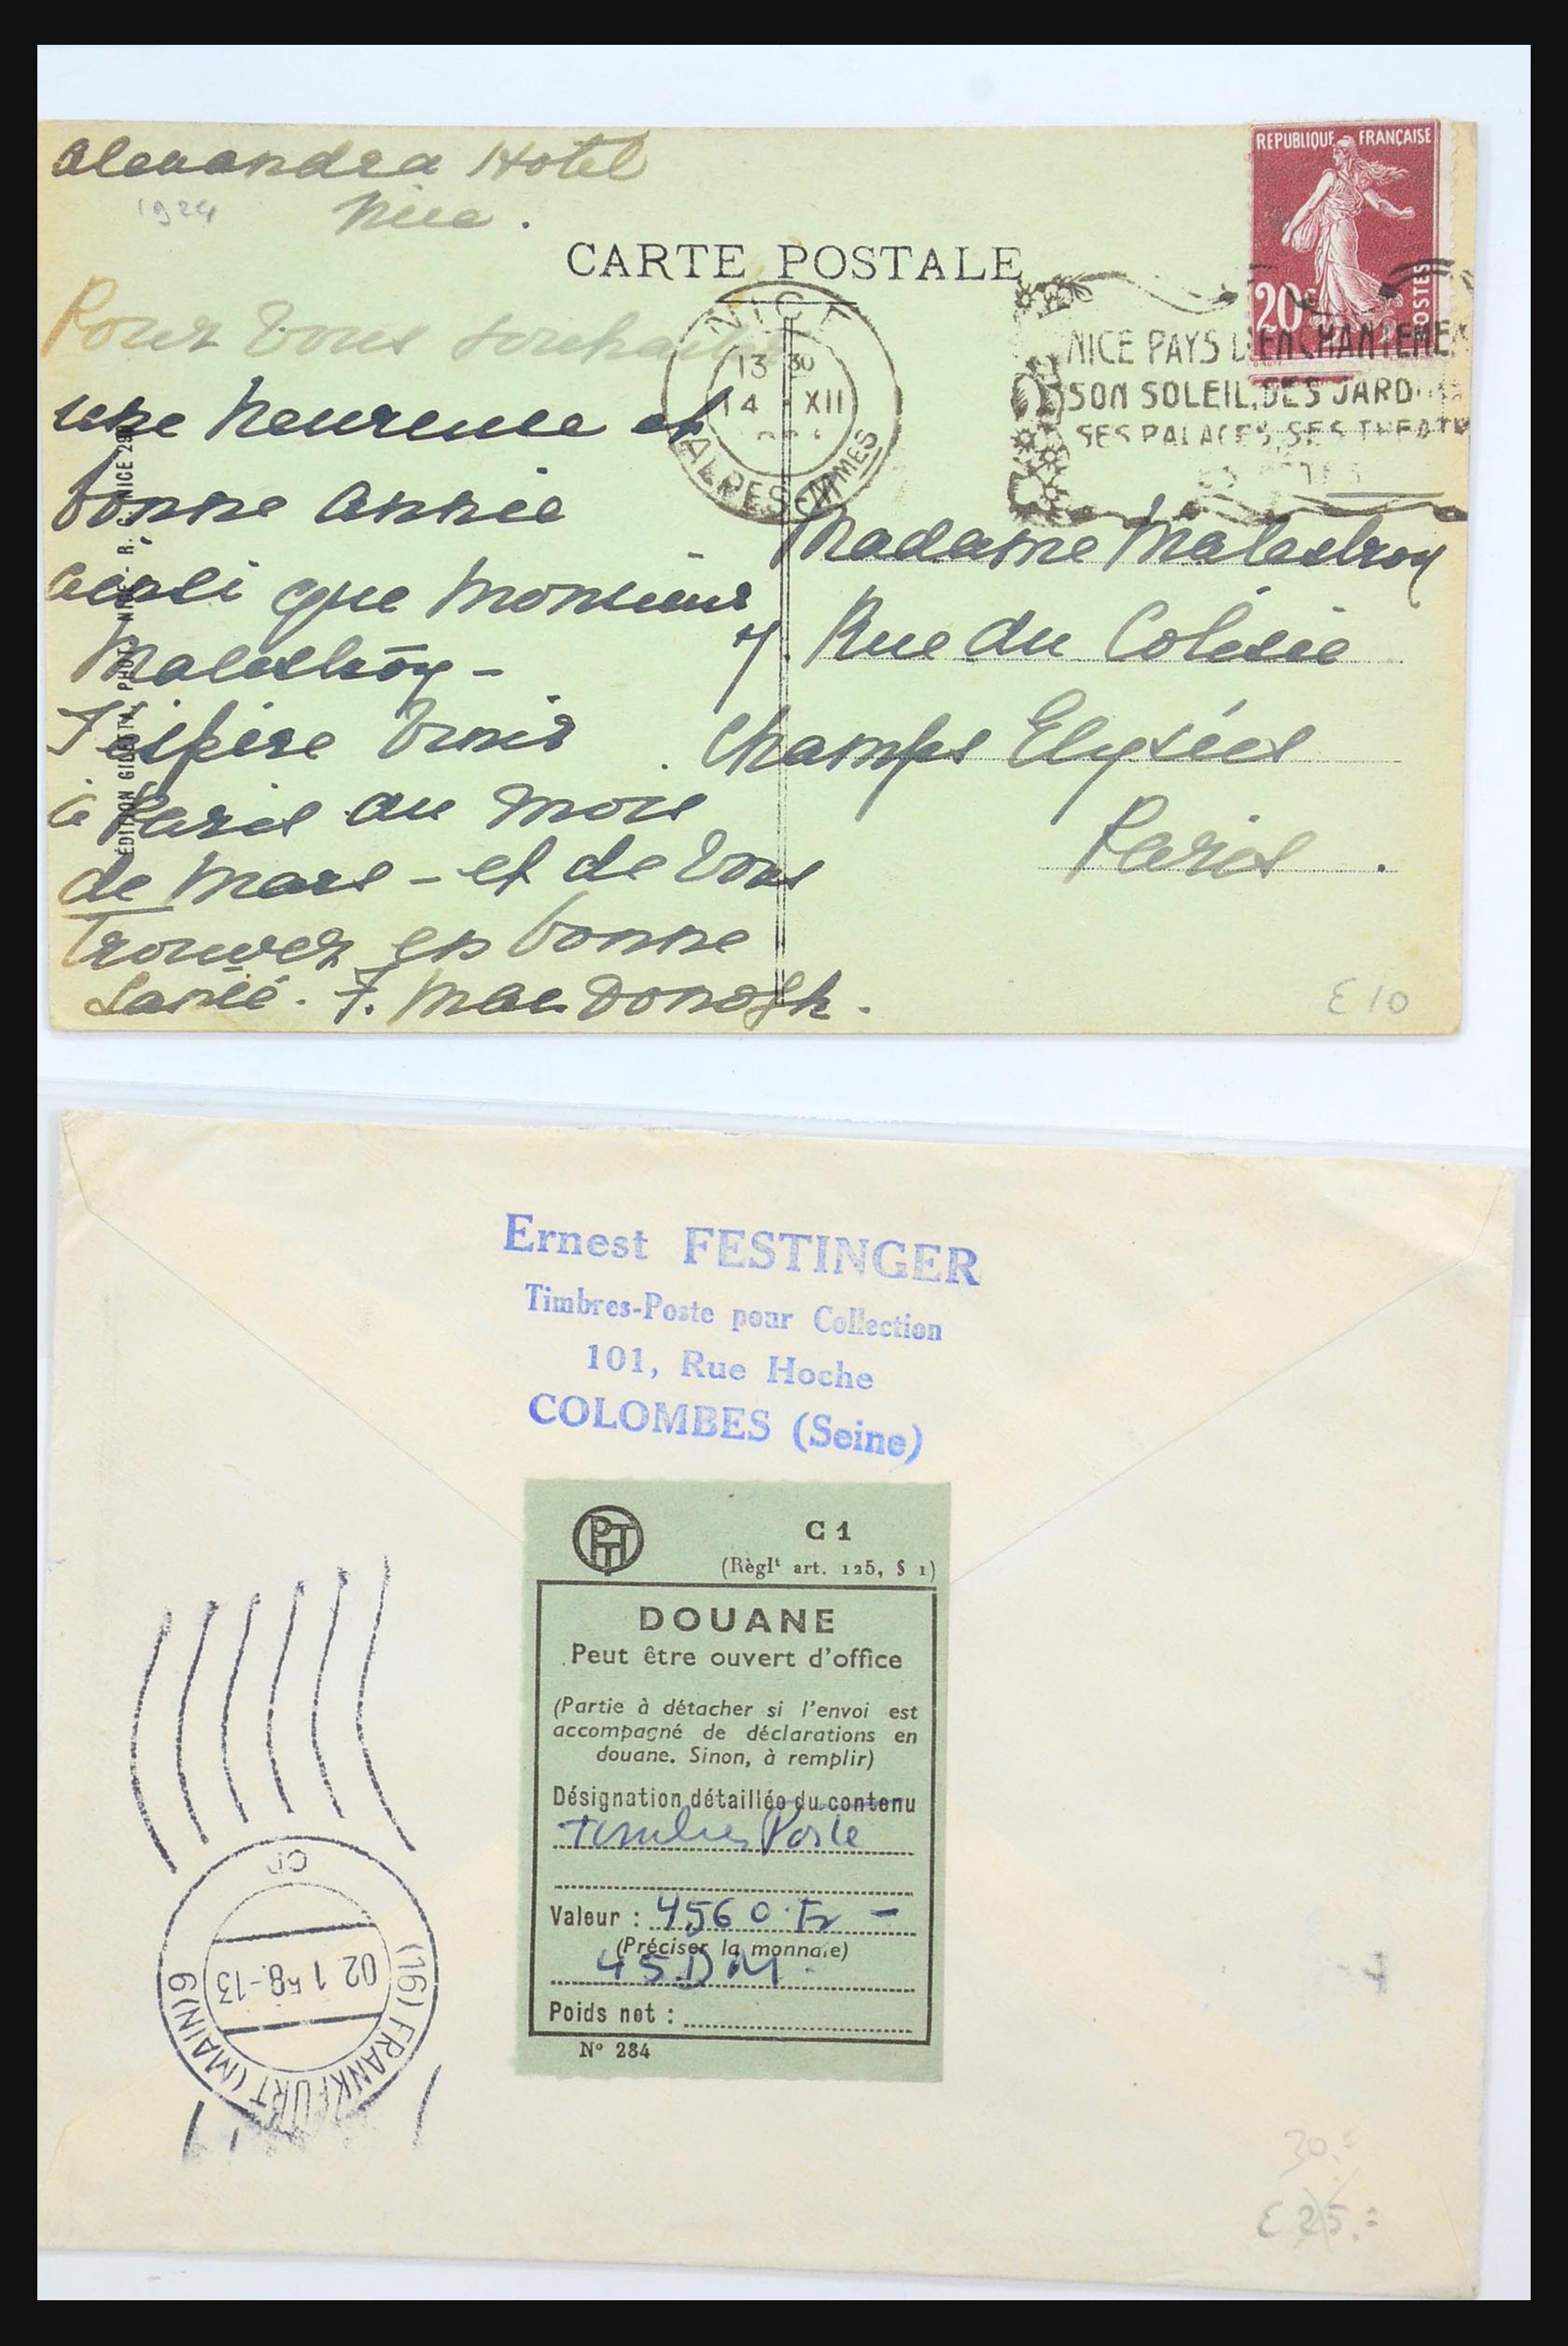 Alexandra Hotel
1924 Nice.
CARTE POSTALE
REPUBLIQUE FRANÇAISE
20c
POSTES
NICE
13 30
14 XII
ALPES-MMES
NICE PAYS D'ENCHANTEME
SON SOLEIL, SES JARD
SES PALACES, SES THEAT
Pour vous souhaiter
une heureuse et
bonne année
ainsi que Monsieur
Malestroy -
J'espère venir
à Paris au mois
de Mars - et de vous
trouver en bonne
santé. F. MacDonogh.
Madame Malestroy
4. Rue du Colisée
Champs Elysées
Paris.
ÉDITION GILETTA, PHOT., NICE - R. C. NICE 29
E 10
Ernest FESTINGER
Timbres-Poste pour Collection
101, Rue Hoche
COLOMBES (Seine)
PTT
C 1
(Règlt art. 125, § 1)
DOUANE
Peut être ouvert d'office
(Partie à détacher si l'envoi est
accompagné de déclarations en
douane. Sinon, à remplir)
Désignation détaillée du contenu
timbres Poste
Valeur : 4560 Fr -
(Préciser la monnaie)
45 DM.
Poids net :
N° 284
(16) FRANKFURT (MAIN) 9
02 1 58-13
30.=
E 25.=